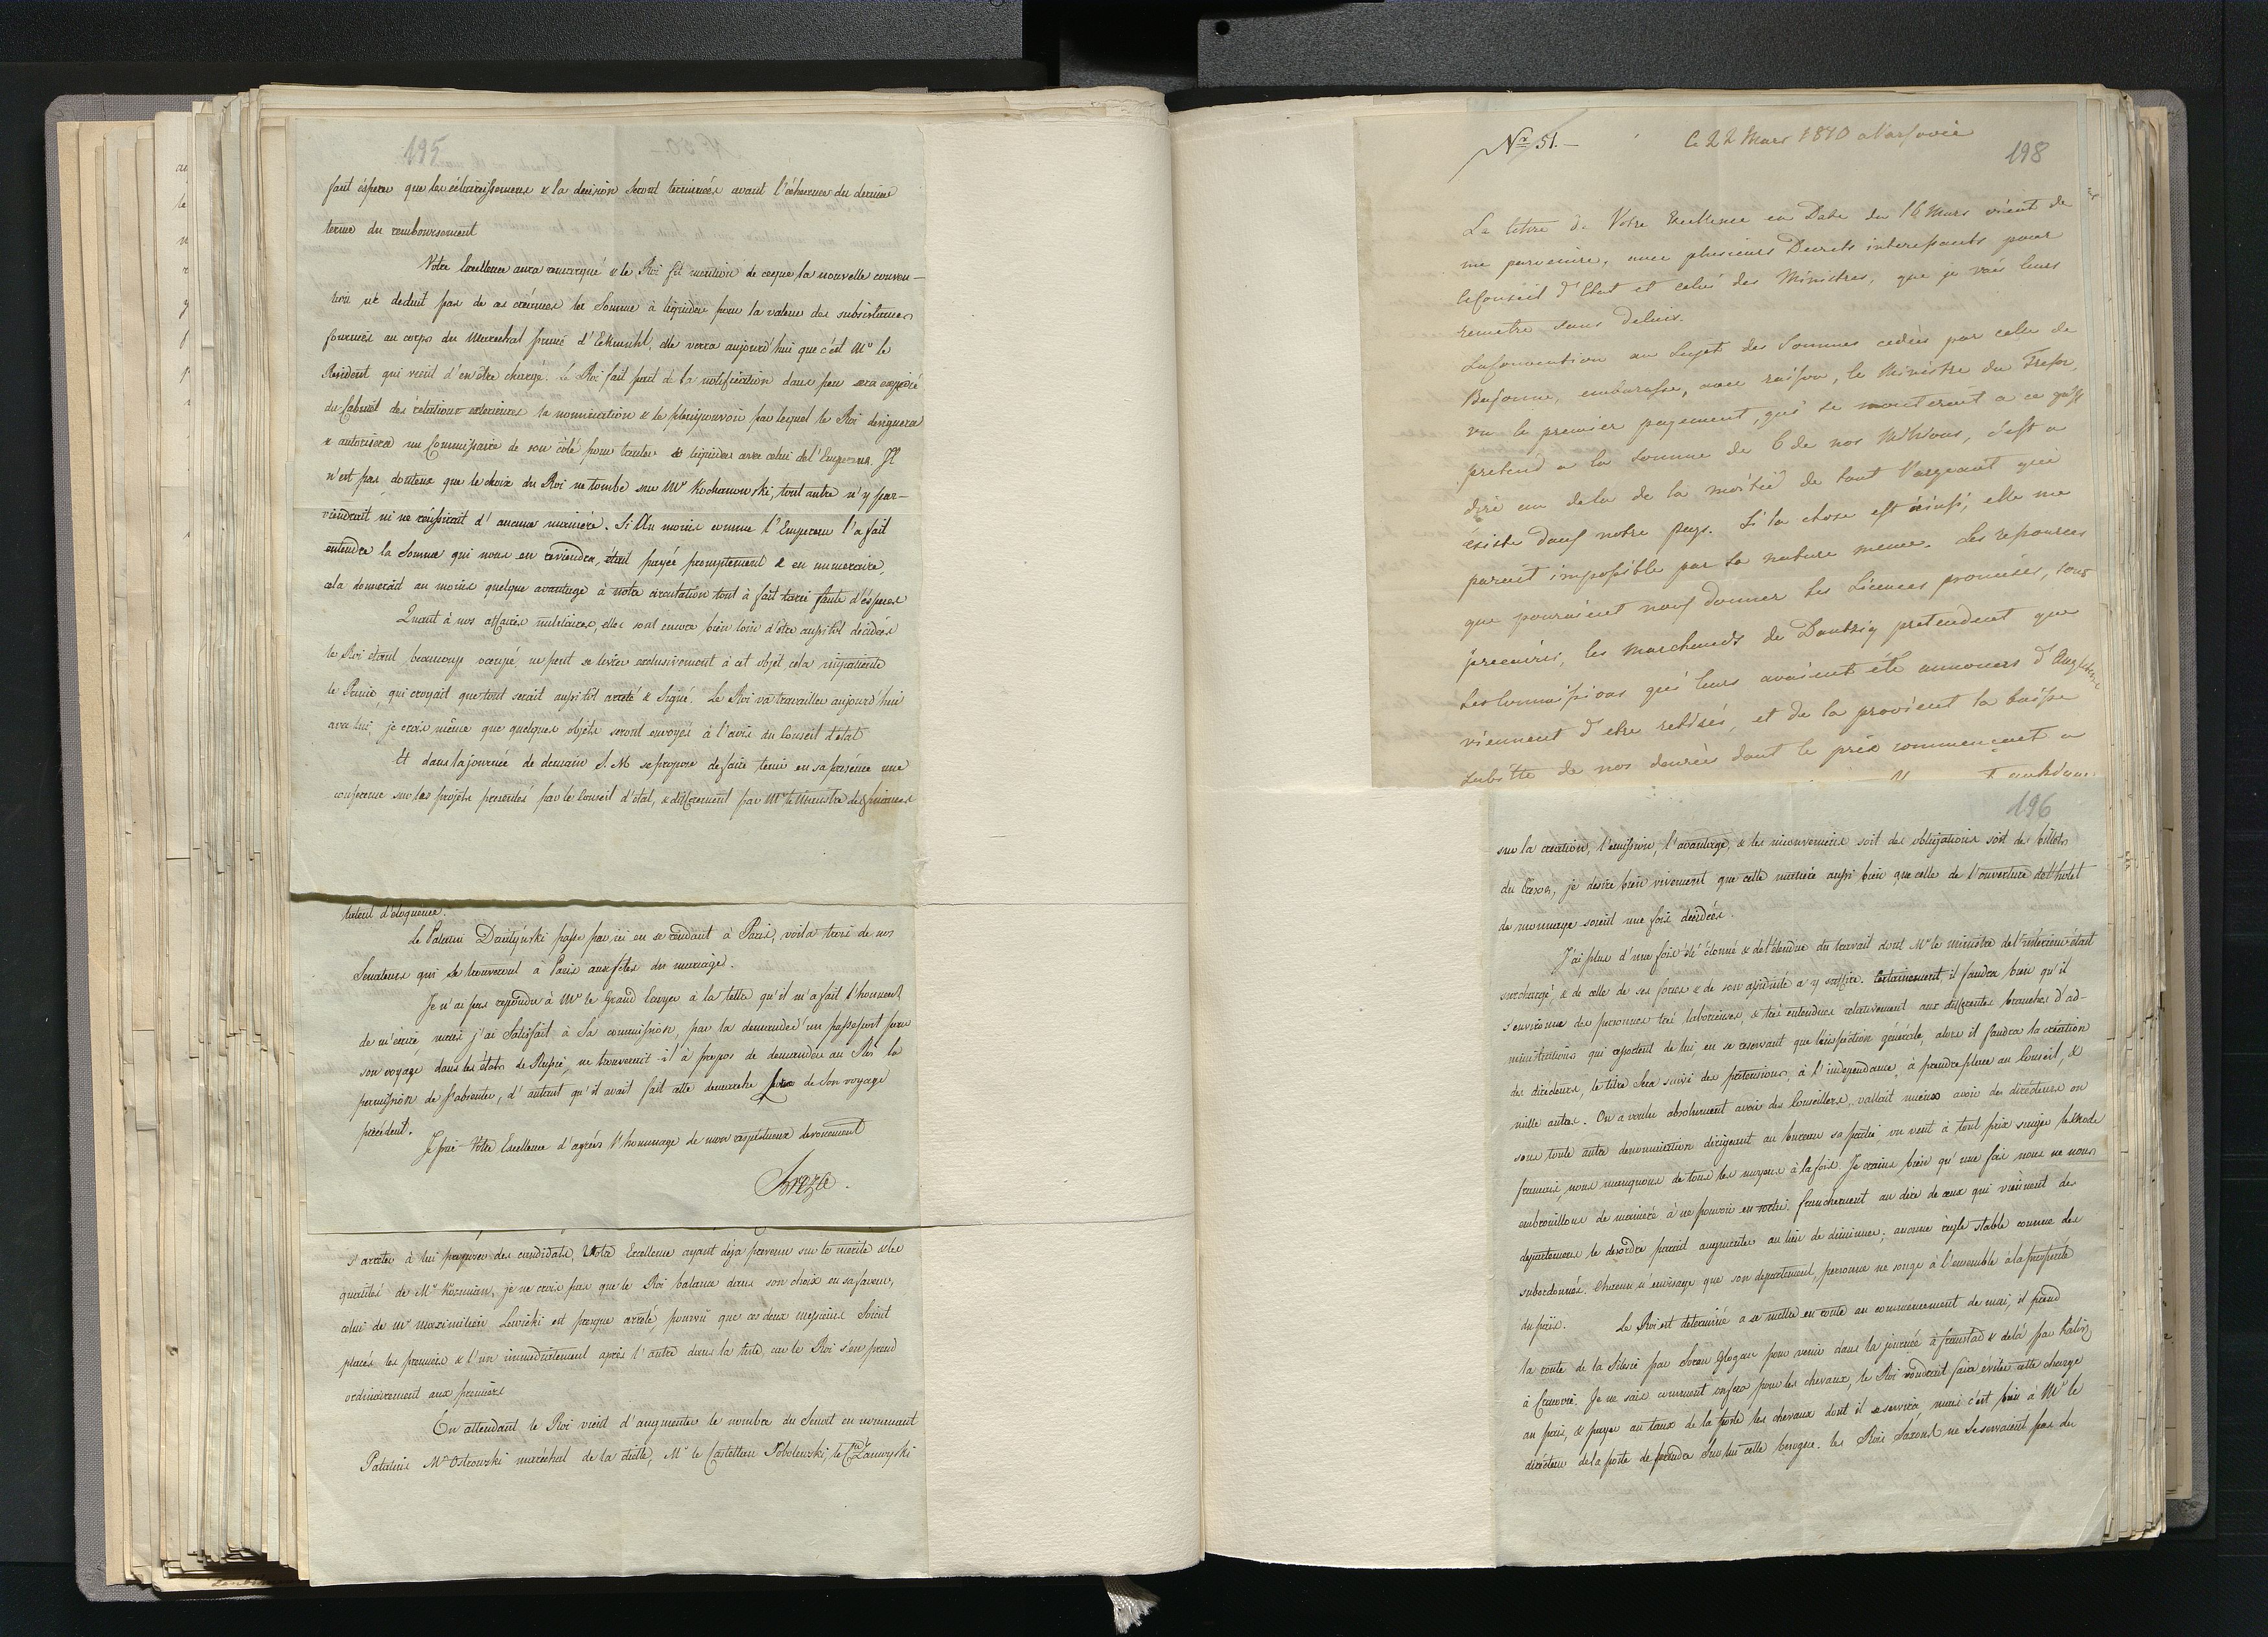 195
faut esperer que les éclaircissemens & la decision seront terminées avant l'échéance du dernier
terme du remboursement
Votre Excellence aura remarqué & le Roi fit mention de ceque la nouvelle conven-
tion ne deduit pas de ces créances la Somme à liquider pour la valeur des subsistances
fournies au corps du Marechal prince d'Eckmuhl, elle verra aujourd'hui que c'est Mr le
Resident qui vient d'en être chargé. Le Roi fait part de la notification dans peu sera expedié
du Cabinet des relations exterieures la nomination & le pleinpouvoir par lequel le Roi designera
& autorisera un Commissaire de son côté pour traiter & liquider avec celui de l'Empereur. Il
n'est pas douteux que le choix du Roi ne tombe sur Mr Kochanowski, tout autre n'y par-
viendrait ni ne réussirait d'aucune manière. Si Au moins comme l'Empereur l'a fait
entendre la Somme qui nous en reviendra, était payée promptement & en numeraire,
cela donnerait au moins quelque avantage à notre circulation tout à fait tarri faute d'éspeces
Quant à nos affaires militaires, elles sont encore bien loin d'être aussitôt décidées
le Roi étant beaucoup occupé ne peut se livrer exclusivement à cet objet cela impatiente
le Prince, qui croyait que tout serait aussitôt arreté & Signé. Le Roi va travailler aujourd'hui
avec lui, je crois même que quelques objets seront envoyés à l'avis du Conseil d'etat
Et dans la journée de demain S. M. se propose de faire tenir en sa présence une
conference sur les projets presentés par le Conseil d'état, & differement par Mr le Ministre des finances
talent d'éloquence.
Le Palatin Dzialynski passe par ici en se rendant à Paris, voila trois de nos
Senateurs qui se trouveront à Paris aux fêtes du mariage.
Je n'ai pas repondu à Mr le Grand Ecuyer à la lettre qu'il m'a fait l'honneur
de m'écrire, mais j'ai Satisfait à Sa commission, par la demande d'un passeport pour
son voyage dans les états de Russie, ne trouverait-il à propos de demander au Roi la
permission de s'absenter, d'autant qu'il avait fait cette demarche lors de son voyage
précédent.
Je prie Votre Excellence d'agréer l'hommage de mon respectueux devouement
Breza.
s'arreter à lui proposer des candidats, Votre Excellence ayant déja prevenu sur le merite & les
qualités de Mr Kozmian, je ne crois pas que le Roi balance dans son choix en sa faveur,
celui de Mr Maximilien Lewicki est presque arreté, pourvû que ces deux messieurs Soient
placés les premiers & l'un immediatement après l'autre dans la liste, car le Roi s'en prend
ordinairement aux premiers
En attendant le Roi vient d'augmenter le nombre du Senat en nommant
Palatins Mr Ostrowski maréchal de la diette, Mr le Castellan Sobolewski, le Zamoyski
Nr 51.-
Ce 22 Mars 1810 a Varsovie
198
La lettre de Votre Excellence en Date du 16 Mars vient de
me parvenire, avec plusieurs Decrets interessants pour
le Conseil d'Etat et celui des Ministres, que je vais leurs
remetre sans delais.
La Convention au Sujet des Sommes cedées par celle de
Bajonne, embarasse, avec raison, le Ministre du Tresor,
vu le premier payement, qui se monterait a ce qu'il
pretend a la somme de 6 de nos Millions, c'est a
dire au dela de la moitié de tout l'argeant qui
existe dans notre pays. Si la chose est ainsi, elle me
parait impossible par sa nature meme. Les resources
que pouraient nous donner les Licences promises, sont
precaires, les Marchands de Dantzig pretendent que
Les Commissions qui leurs avaient été annoncés d'Angleterre
viennent d'etre retirés, et de la provient la baisse
subitte de nos denrées dont le prix commencent a
196
sur la création, l'emission, l'avantage, & les inconveniens soit des obligations soit des billets
du tresor, je désire bien vivement que cette matière aussi bien que celle de l'ouverture de l'hotel
de monnaye soient une fois decidées.
J'ai plus d'une fois été étonné & de l'étendue du travail dont Mr le ministre de l'interieur était
surchargé, & de celle de ses forces & de son assiduité a y suffire. Certainement, il faudra bien qu'il
s'environne des personnes très laborieuses, & très entendues relativement aux differentes branches d'ad-
ministrations qui reportent de lui en se reservant que l'inspection générale, alors il faudra la création
des directeurs, le titre Sera suivi des pretensions, à l'independance, à prendre place au Conseil, &
mille autres. On a voulu absolument avoir des Conseillers, vallait mieux avoir des directeurs ou
sous toute autre denomination dirigeant au bureau sa partie, on veut à tout prix singer le mode
francais, nous manquons de tous les moyens à la fois. Je crains bien qu'une fois nous ne nous
embrouillons de maniere à ne pouvoir en sortir. franchement au dire de ceux qui viennent des
departemens le desordre parait augmenter au lieu de diminuer; aucune règle stable comme des
subordonnés. Chacun n'envisage que son departement, personne ne songe à l'ensemble à la prosperité
du païs. Le Roi est determiné a se mettre en route au commencement de mai, il prend
la route de la Silesie par Sorau Glogau pour venir dans la journée à fraustad & delà par Kalisz
à Cracovie. Je ne sais comment on fera pour les chevaux, le Roi voudrait faire éviter cette charge
au païs, & payer au taux de la poste les chevaux dont il se servira mais c'est bien à Mr le
directeur de la poste de prendre Sur lui cette besogne. les Rois Saxons ne se servaient pas du